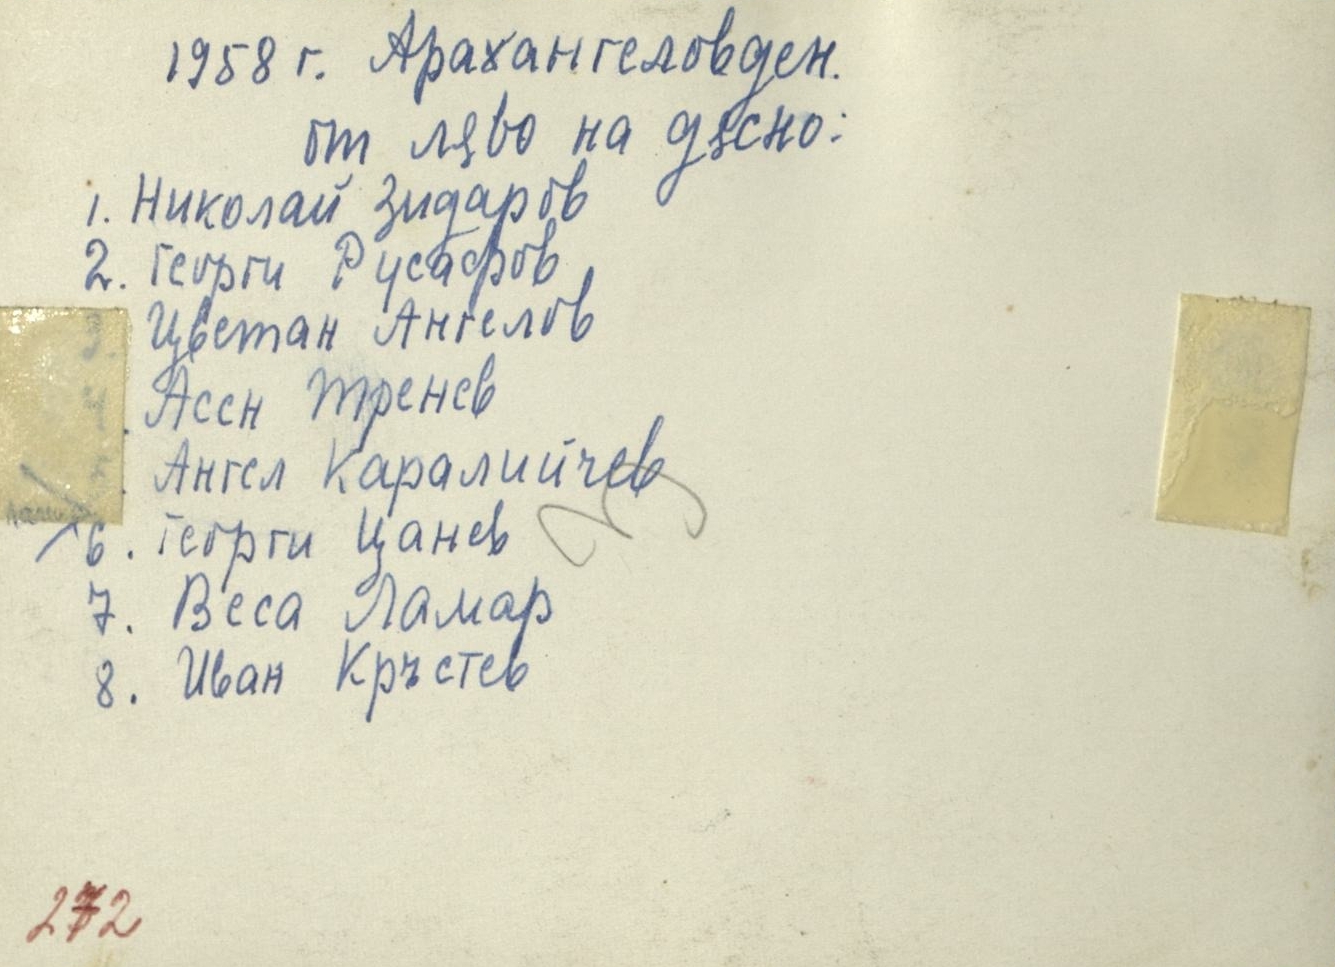 1958 г. Арахангеловден.
от лево на десно:
1. Николай Зидаров
2. Георги Русафов
3. Цветан Ангелов
4. Асен Тренев
5. Ангел Каралийчев
6. Георги Цанев
7. Веса Ламар
8. Иван Кръстев
272